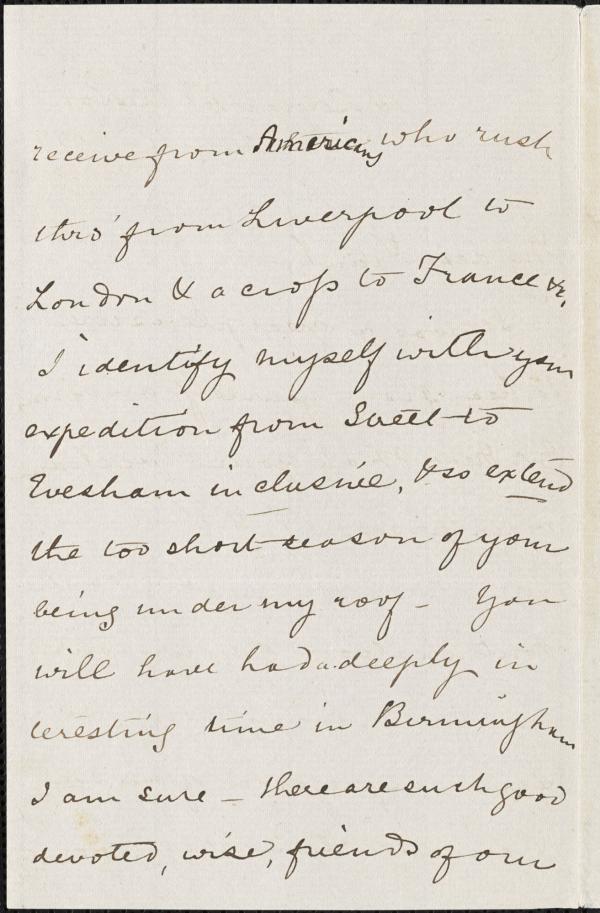 receive from Americans who rush
thro' from Liverpool to
London & across to France &c.
I identify myself with your
expedition from Street to
Evesham inclusive, & so extend
the too short season of your
being under my roof - You
will have had a deeply in
teresting time in Birmingham
I am sure - there are such good
devoted, wise, friends of our